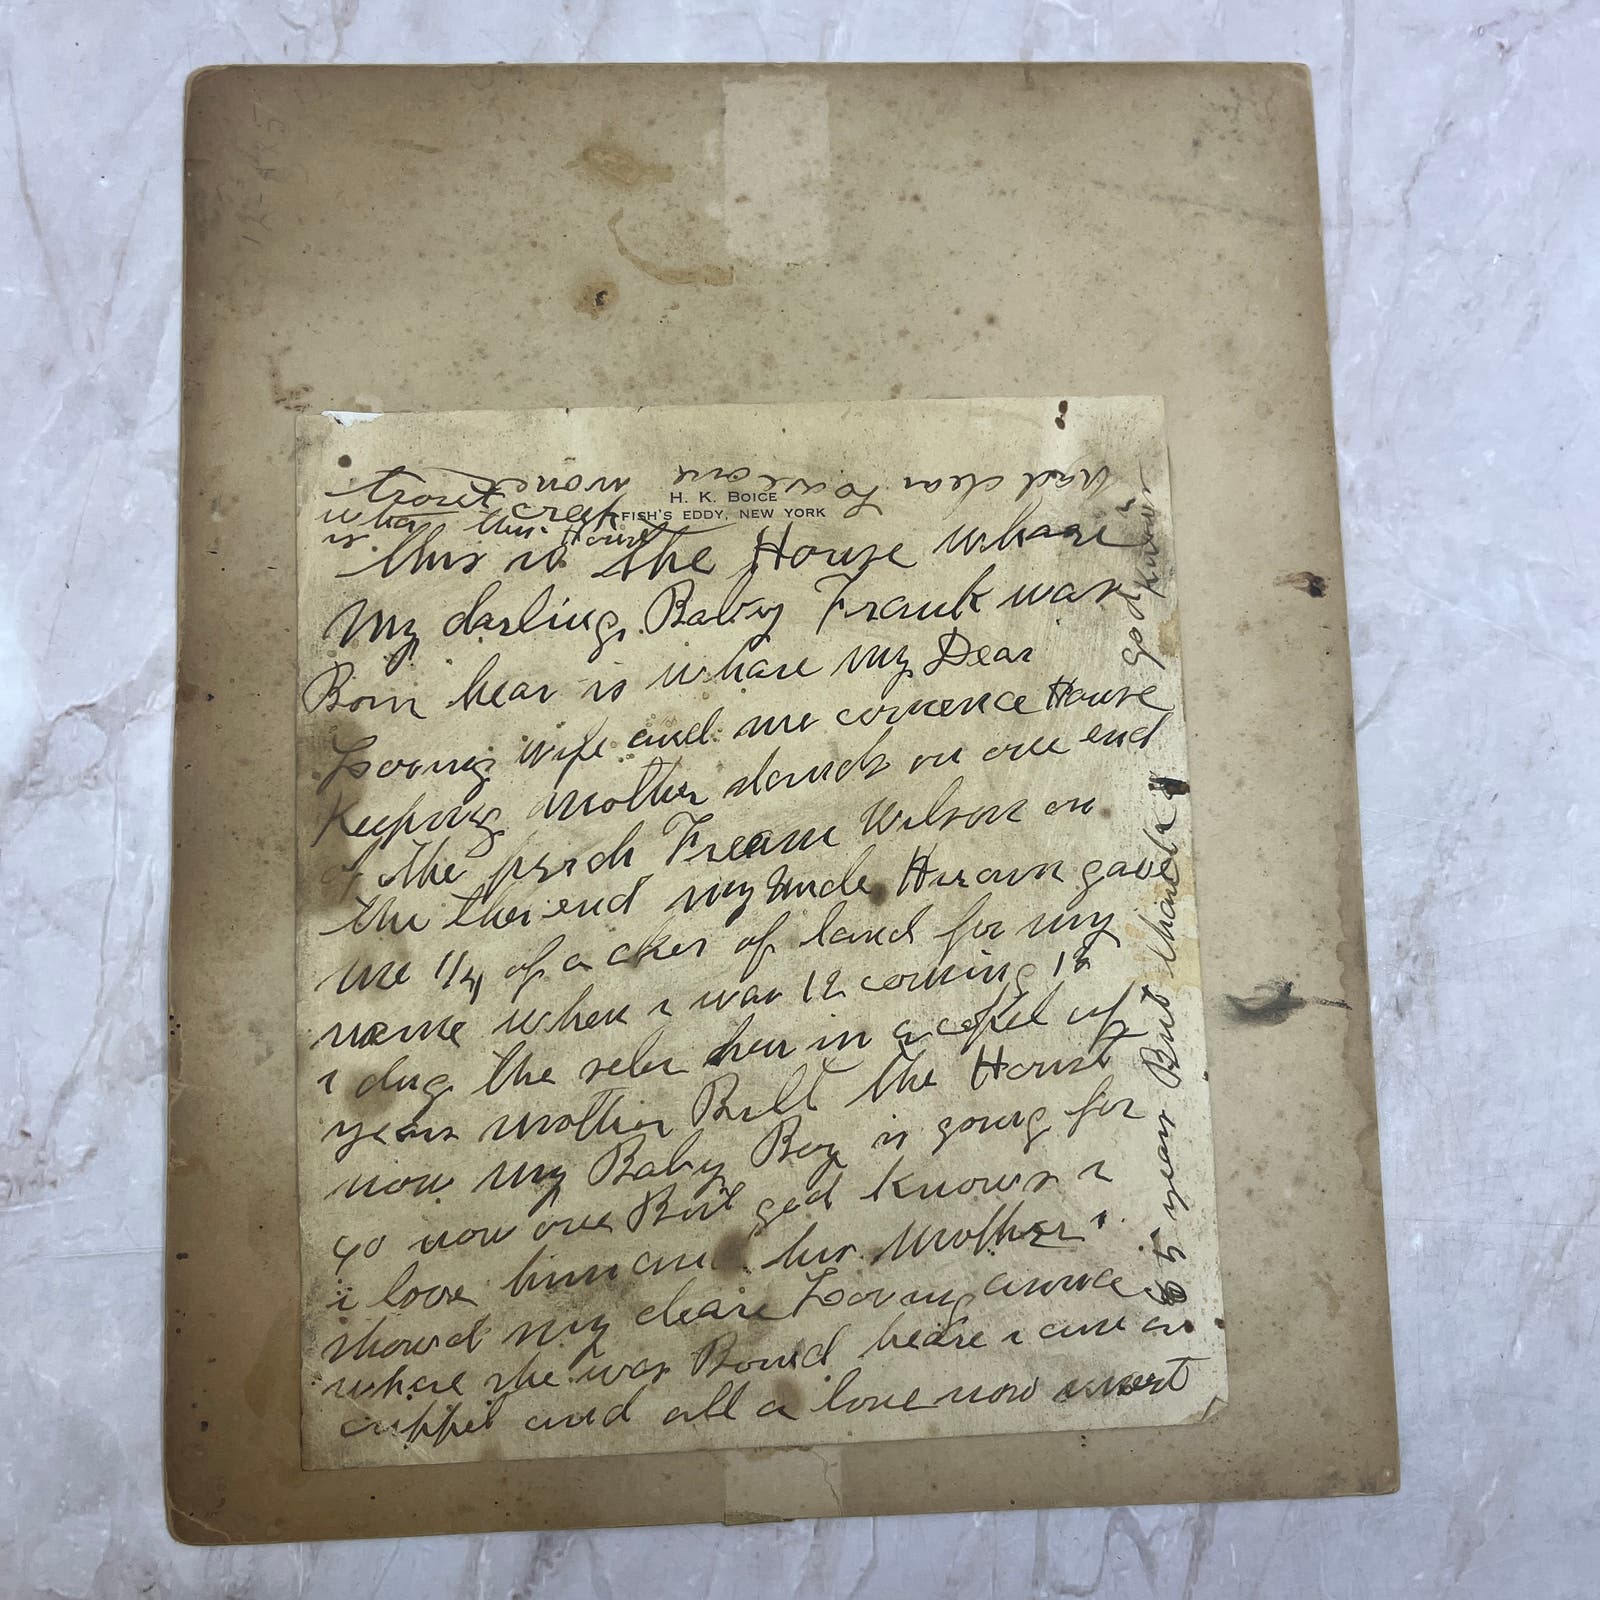 H. K. BOICE
FISH'S EDDY, NEW YORK
trout creek
whar this House
is
this is the House whare
My darling Baby Frank was
Born hear is whare my Dear
Loving wife and me comence House
Keeping mother stands on one end
of the porch Wilson on
the end my Uncle Hiram gave
me 1/4 of a aker of land for my
name when i was 12 coming 13
i dug the in a copel of
years mother Bilt the House
now my Baby Boy is going for
40 now But god knows i
i love him and his Mother i
showd my deare Loving
whare she was Bornd heare i am a
crippel and all a lone now
65 years But thank
god knows